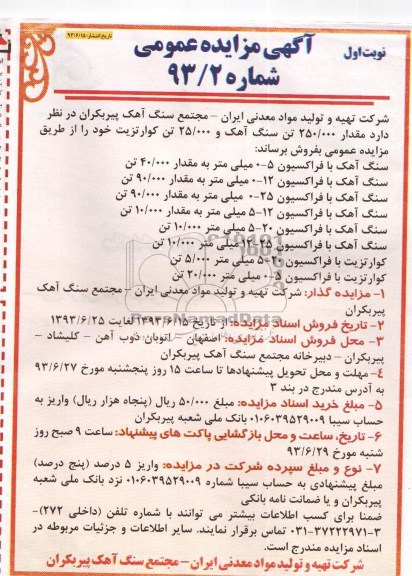 تاریخ انتشار: ۹۳/۶/۱۵
نوبت اول
آگهی مزایده عمومی
شماره ۹۳/۲
شرکت تهیه و تولید مواد معدنی ایران – مجتمع سنگ آهک پیربکران در نظر
دارد مقدار ۲۵۰/۰۰۰ تن سنگ آهک و ۲۵/۰۰۰ تن کوارتزیت خود را از طریق
مزایده عمومی بفروش برساند:
سنگ آهک با فراکسیون ۵-۰ میلی متر به مقدار ۴۰/۰۰۰ تن
سنگ آهک با فراکسیون ۱۲-۰ میلی متر به مقدار ۹۰/۰۰۰ تن
سنگ آهک با فراکسیون ۲۵-۰ میلی متر به مقدار ۹۰/۰۰۰ تن
سنگ آهک با فراکسیون ۱۲-۵ میلی متر به مقدار ۱۰/۰۰۰ تن
سنگ آهک با فراکسیون ۲۰-۵ میلی متر ۱۰/۰۰۰ تن
سنگ آهک با فراکسیون ۲۵-۱۲ میلی متر ۱۰/۰۰۰ تن
کوارتزیت با فراکسیون ۲۰-۵ میلی متر ۵/۰۰۰ تن
کوارتزیت با فراکسیون ۵-۰ میلی متر ۲۰/۰۰۰ تن
۱- مزایده گذار: شرکت تهیه و تولید مواد معدنی ایران – مجتمع سنگ آهک
پیربکران
۲- تاریخ فروش اسناد مزایده: از تاریخ ۱۳۹۳/۶/۱۵ لغایت ۱۳۹۳/۶/۲۵
۳- محل فروش اسناد مزایده: اصفهان – اتوبان ذوب آهن – کلیشاد –
پیربکران – دبیرخانه مجتمع سنگ آهک پیربکران
۴- مهلت و محل تحویل پیشنهادها تا ساعت ۱۵ روز پنجشنبه مورخ ۹۳/۶/۲۷
به آدرس مندرج در بند ۳
۵- مبلغ خرید اسناد مزایده: مبلغ ۵۰/۰۰۰ ریال (پنجاه هزار ریال) واریز به
حساب سیبا ۰۱۰۶۰۳۹۵۲۹۰۰۹ بانک ملی شعبه پیربکران
۶- تاریخ، ساعت و محل بازگشایی پاکت های پیشنهاد: ساعت ۹ صبح روز
شنبه مورخ ۹۳/۶/۲۹
۷- نوع و مبلغ سپرده شرکت در مزایده: واریز ۵ درصد (پنج درصد)
مبلغ پیشنهادی به حساب سیبا شماره ۰۱۰۶۰۳۹۵۲۹۰۰۹ نزد بانک ملی شعبه
پیربکران و یا ضمانت نامه بانکی
ضمنا برای کسب اطلاعات بیشتر می توانند با شماره تلفن (داخلی ۲۷۲)-
۳-۳۷۲۲۲۹۷۱-۰۳۱ تماس برقرار نمایند. سایر اطلاعات و جزئیات مربوطه در
اسناد مزایده مندرج است.
شرکت تهیه و تولید مواد معدنی ایران – مجتمع سنگ آهک پیربکران